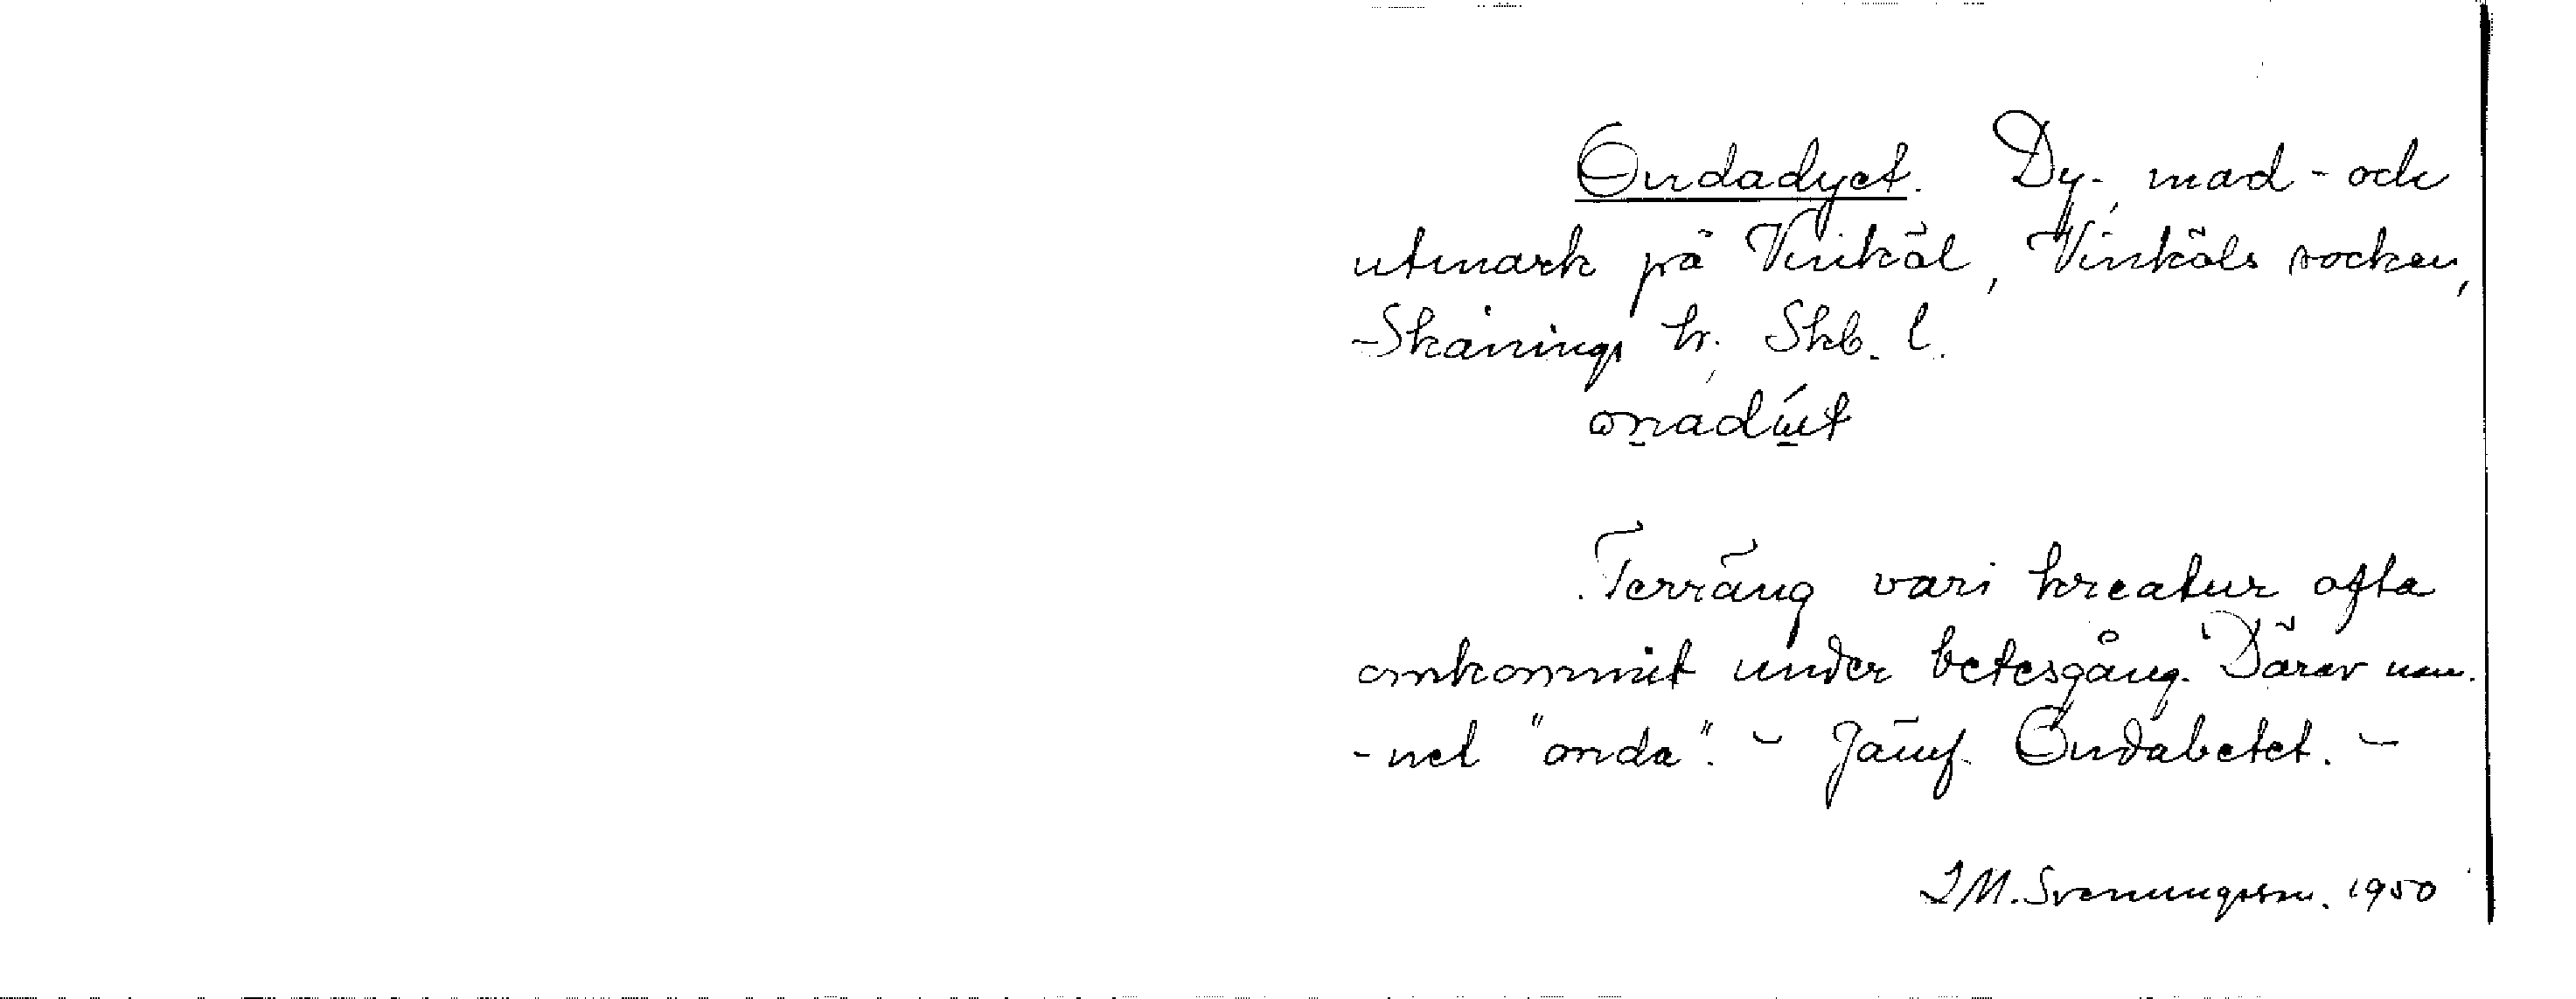 Ondadyet. Dy-, mad- och
utmark på Vinköl, Vinköls socken,
Skånings hr. Skb. l.
Terräng vari kreatur ofta
omkommit under betesgång. Därav nam-
-net "onda". - Jämf. Ondabetet. -
I M. Svenungsson. 1950